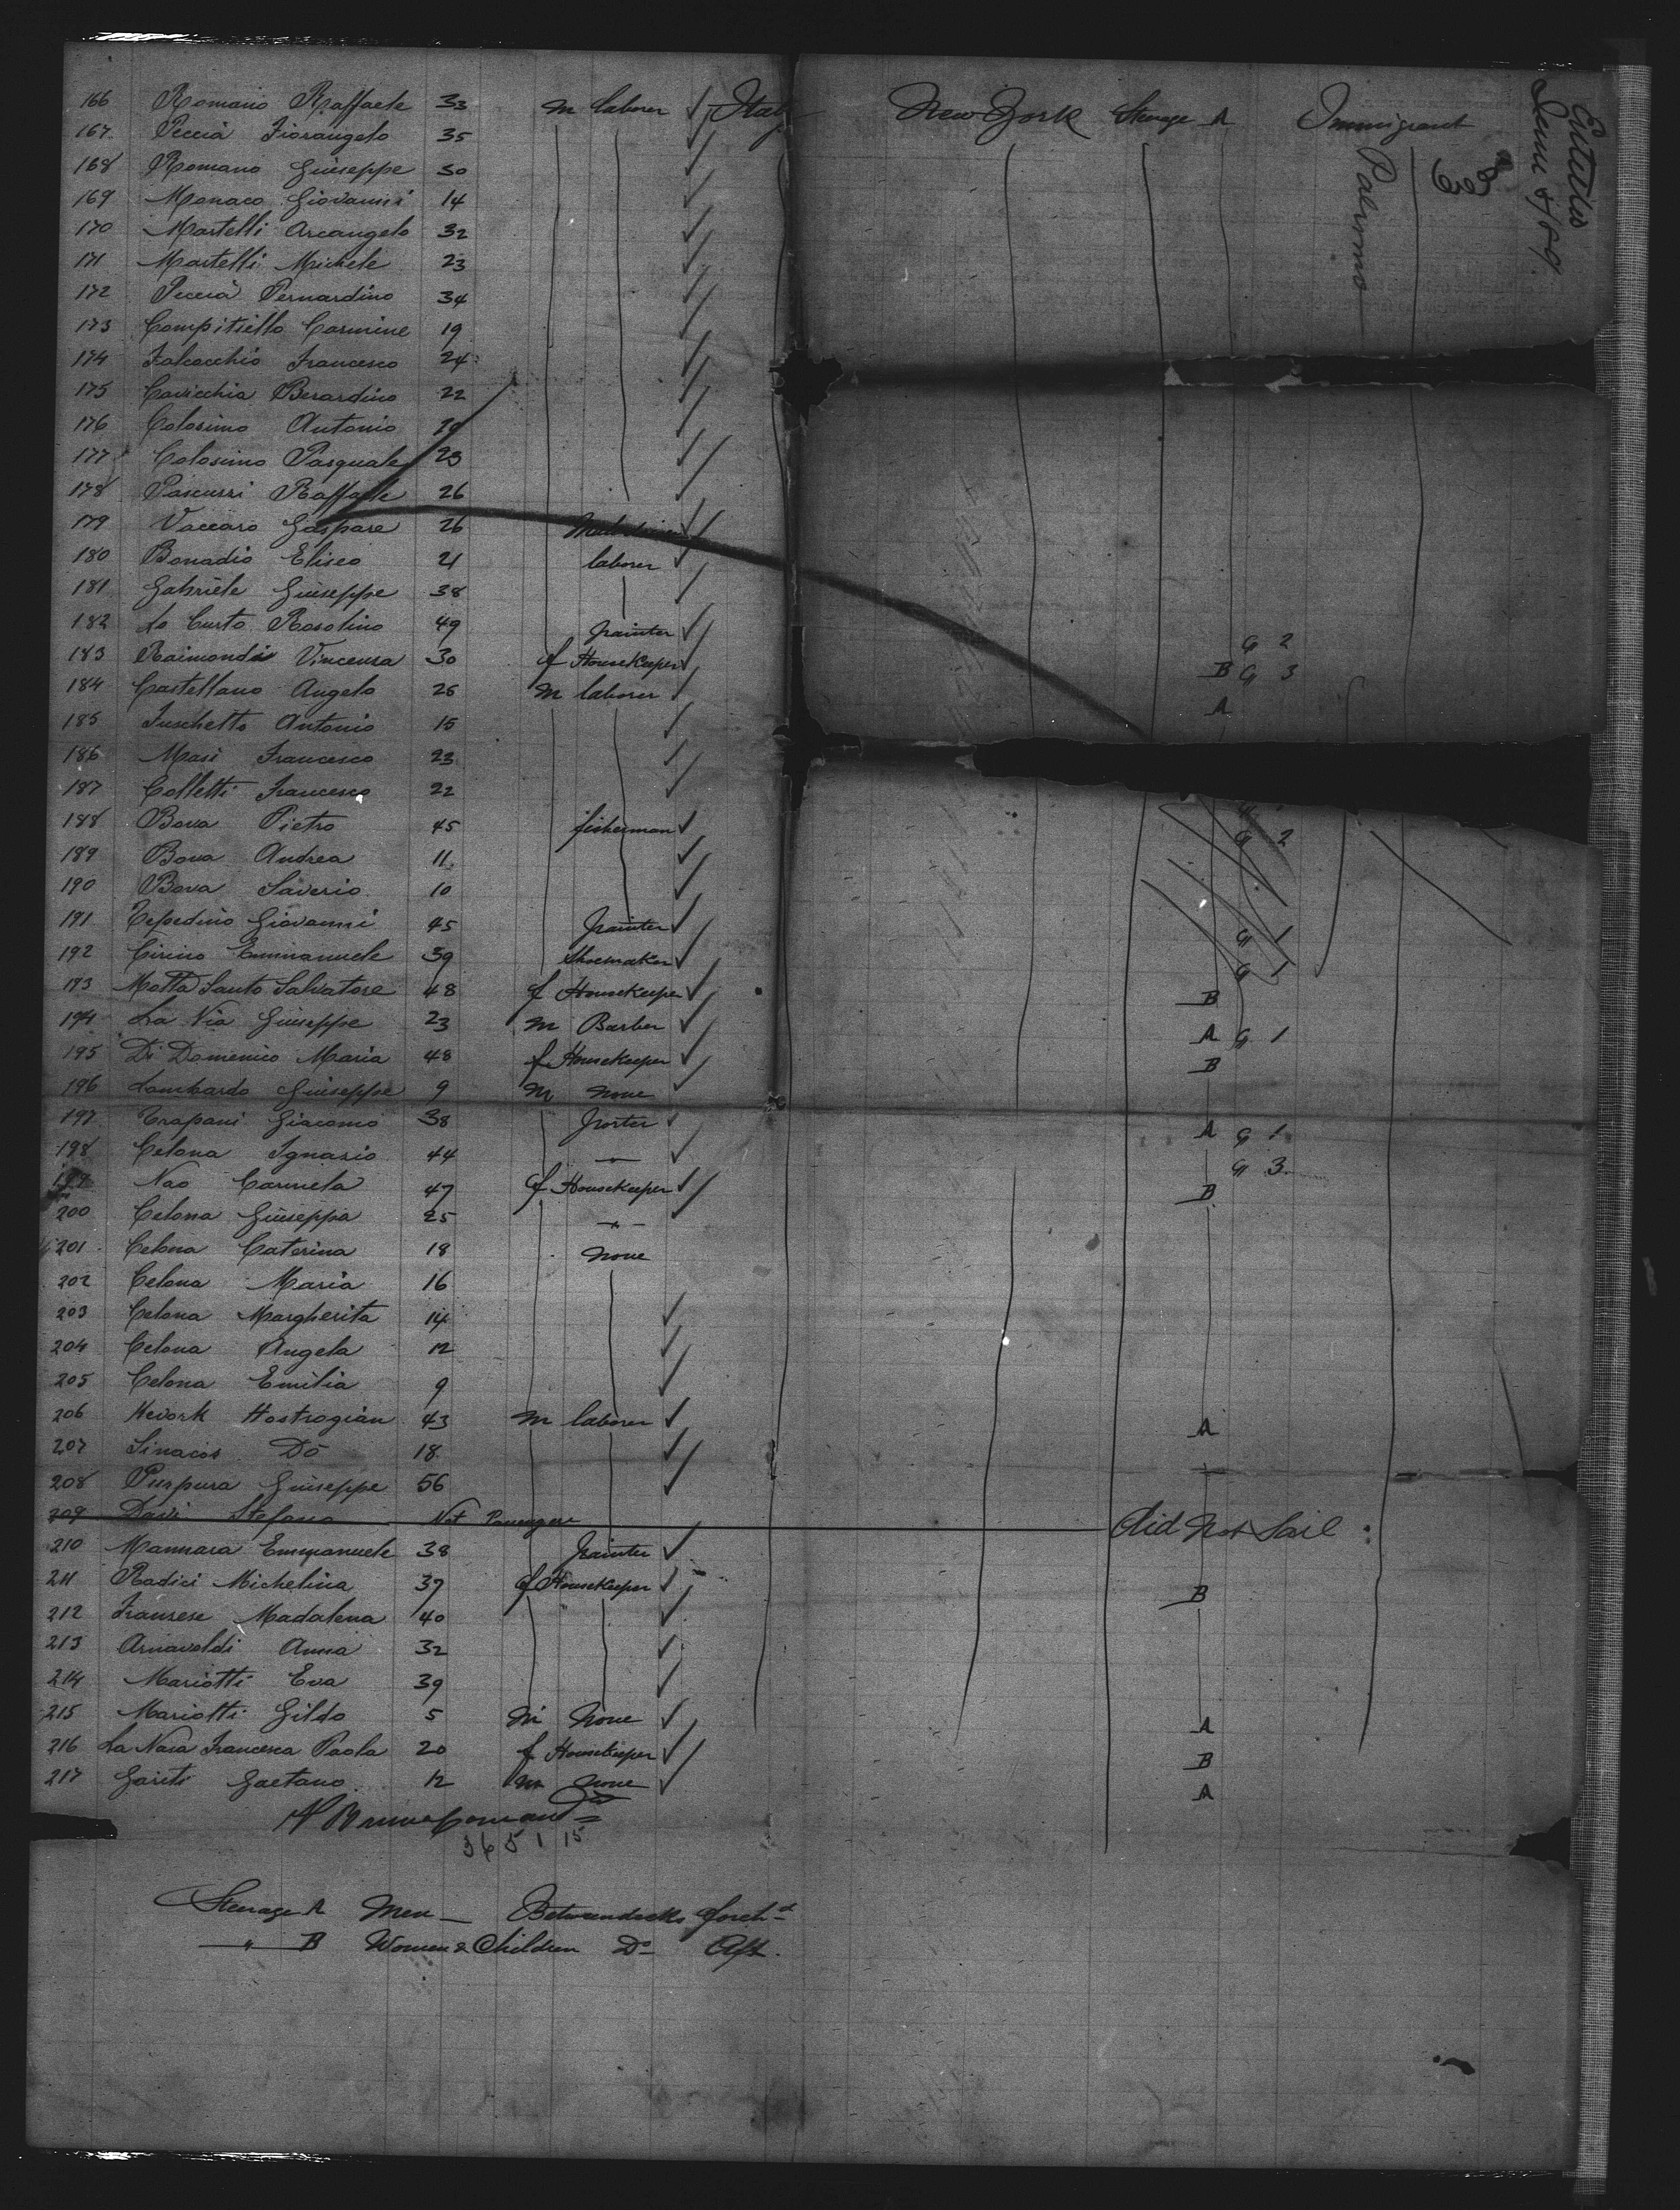 Entered
June 8/89
633
Palermo
166 Romano Raffaele 33 m laborer Italy New York Steerage A Immigrant
167 Peccia Fiorangelo 35
168 Romano Giuseppe 30
169 Monaco Giovanni 14
170 Martelli Arcangelo 32
171 Martelli Michele 23
172 Peccia Pernardino 34
173 Compitiello Carmine 19
174 Falcocchio Francesco 24
175 Cavicchia Berardino 22
176 Colosimo Antonio
177 Colosimo Pasquale 23
178 Pascuzzi Raffaele 26
179 Vaccaro Gaspare 26
180 Bonadio Eliseo 21 laborer
181 Gabriele Giuseppe 38
182 Lo Curto Rosolino 49 painter G 2
183 Raimondi Vincenza 30 f Housekeeper B G 3
184 Castellano Angelo 25 m laborer A
185 Fuschetto Antonio 15
186 Masi Francesco 23
187 Colletti Francesco 22
188 Bova Pietro 45 fisherman G 2
189 Bova Andrea 11
190 Bova Saverio 10
191 Tepedino Giovanni 45 painter G 1
192 Cirino Emmanuele 39 Shoemaker G 1
193 Motta Santo Salvatore 48 f Housekeeper B
194 La Via Giuseppe 23 m Barber A G 1
195 Di Domenico Maria 48 f Housekeeper B
196 Lombardo Giuseppe 9 m none
197 Trapani Giacomo 38 porter A G 1
198 Celona Ignazio 44 - " - G 3
199 Nao Carmela 47 f Housekeeper B
200 Celona Giuseppa 25 - " -
201 Celona Caterina 18 none
202 Celona Maria 16
203 Celona Margherita 14
204 Celona Angela 12
205 Celona Emilia 9
206 Kevork Hostrogian 43 m laborer A
207 Sinacos Do 18
208 Purpura Giuseppe 56
209 Davi Stefano Not Passengers Did not Sail
210 Mannara Emmanuele 38 painter
211 Radici Michelina 37 f Housekeeper B
212 Franzese Madalena 40
213 Arnavoldi Anna 32
214 Mariotti Eva 39
215 Mariotti Gildo 5 m none A
216 La Nasa Francesca Paola 20 f Housekeeper B
217 Gariti Gaetano 12 m none A
36 5 1 15
Steerage A Men — Betweendecks Forehd
" B Women & Children Do Aft.